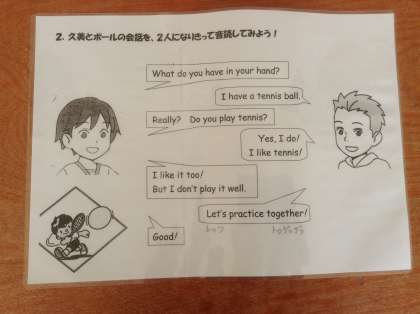 2. 久美とポールの会話を、2人になりきって音読してみよう!
What do you have in your hand?
I have a tennis ball.
Really? Do you play tennis?
Yes, I do!
I like tennis!
I like it too!
But I don't play it well.
Let's practice together!
Good!